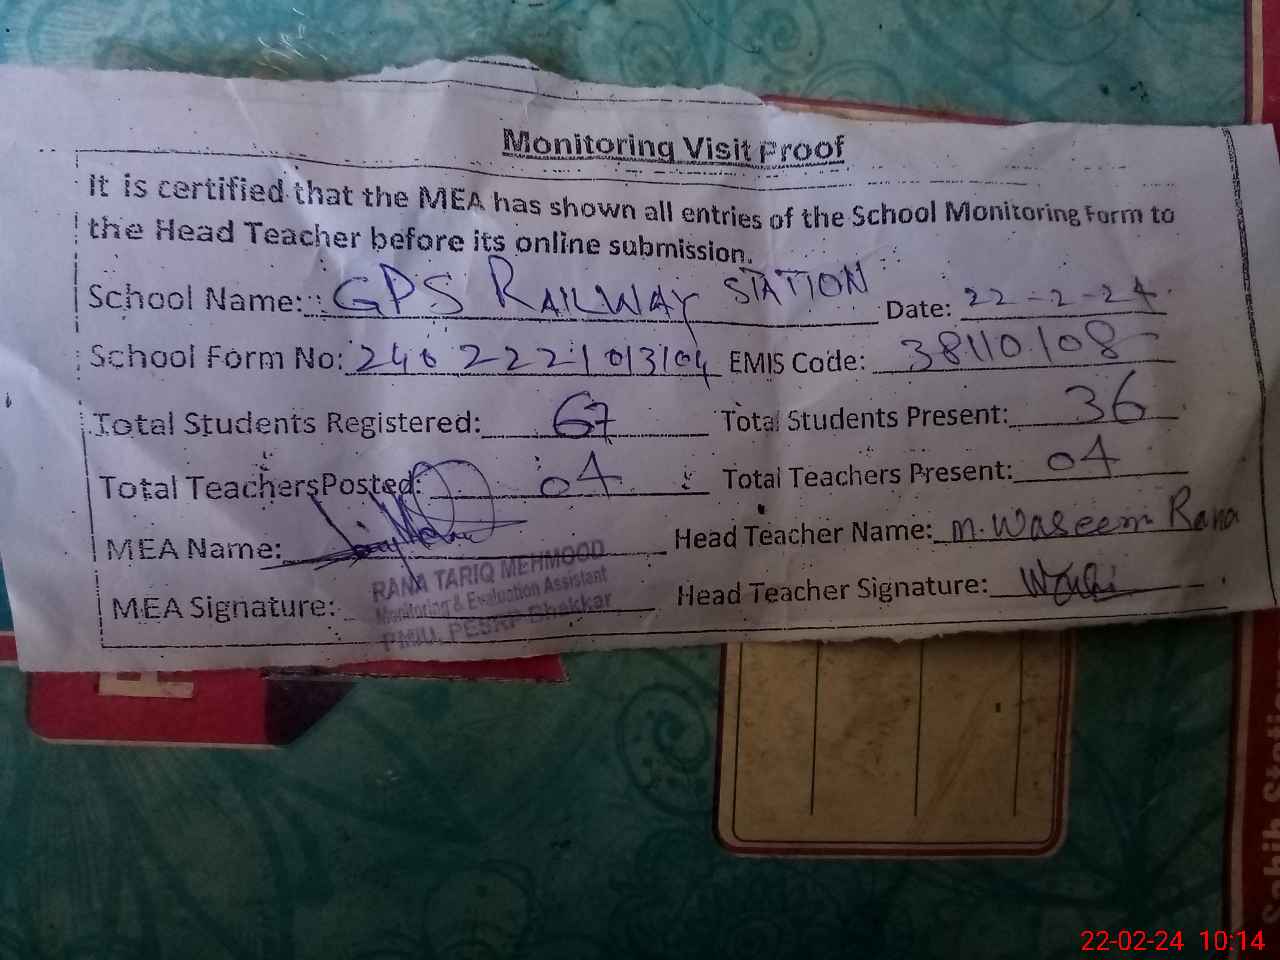 Monitoring Visit Proof
It is certified that the MEA has shown all entries of the School Monitoring Form to
the Head Teacher before its online submission.
School Name: GPS RAILWAY STATION Date: 22-2-24
School Form No: 2402221013104 EMIS Code: 38110108
Total Students Registered: 67 Total Students Present: 36
Total TeachersPosted: 04 Total Teachers Present: 04
MEA Name: Head Teacher Name: M. Waseem Rana
RANA TARIQ MEHMOOD
Monitoring & Evaluation Assistant
PMIU, PESRP Bhakkar
MEA Signature: Head Teacher Signature:
22-02-24 10:14